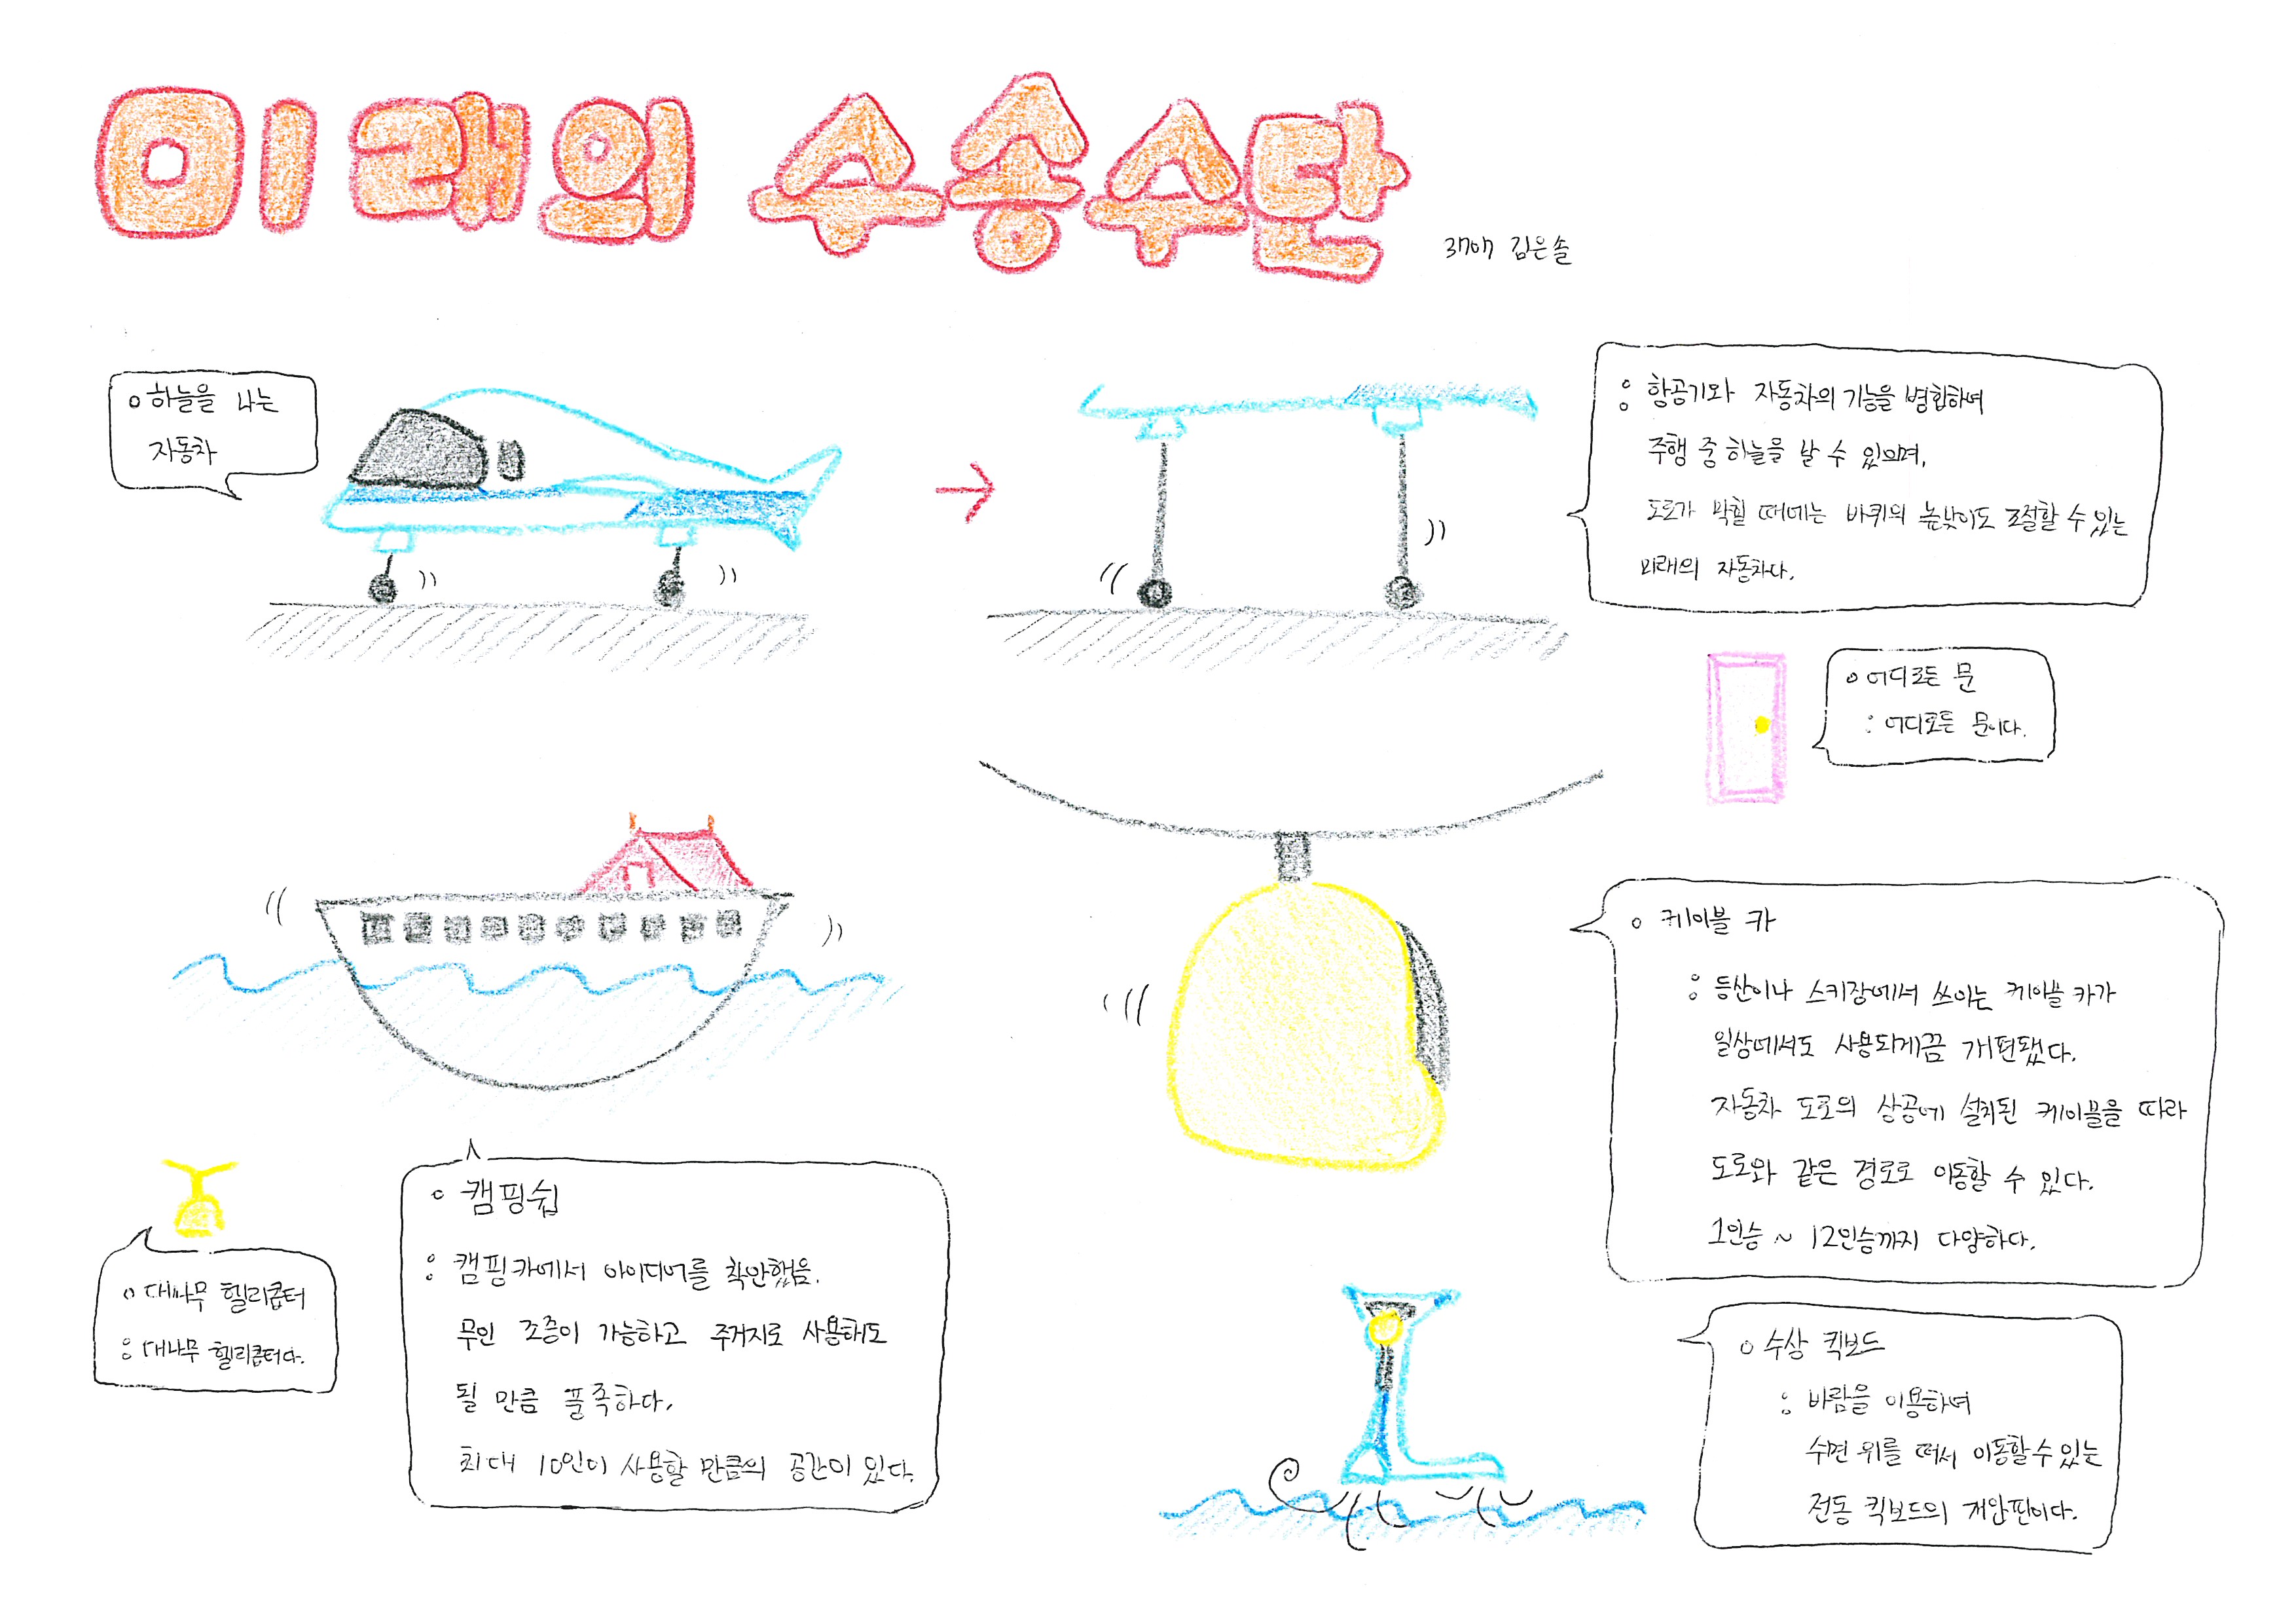 미래의 수송수단
37017 김은솔
○ 하늘을 나는
자동차
: 항공기와 자동차의 기능을 병합하여
주행 중 하늘을 날 수 있으며,
도로가 막힐 때에는 바퀴의 높낮이도 조절할 수 있는
미래의 자동차다.
○ 어디로든 문
: 어디로든 문이다.
○ 케이블 카
: 등산이나 스키장에서 쓰이는 케이블 카가
일상에서도 사용되게끔 개편됐다.
자동차 도로의 상공에 설치된 케이블을 따라
도로와 같은 경로로 이동할 수 있다.
1인승 ~ 12인승까지 다양하다.
○ 대나무 헬리콥터
: 대나무 헬리콥터다.
○ 캠핑쉽
: 캠핑카에서 아이디어를 착안했음.
무인 조종이 가능하고 주거지로 사용해도
될 만큼 풍족하다.
최대 10인이 사용할 만큼의 공간이 있다.
○ 수상 킥보드
: 바람을 이용하여
수면 위를 떠서 이동할 수 있는
전동 킥보드의 개안판이다.